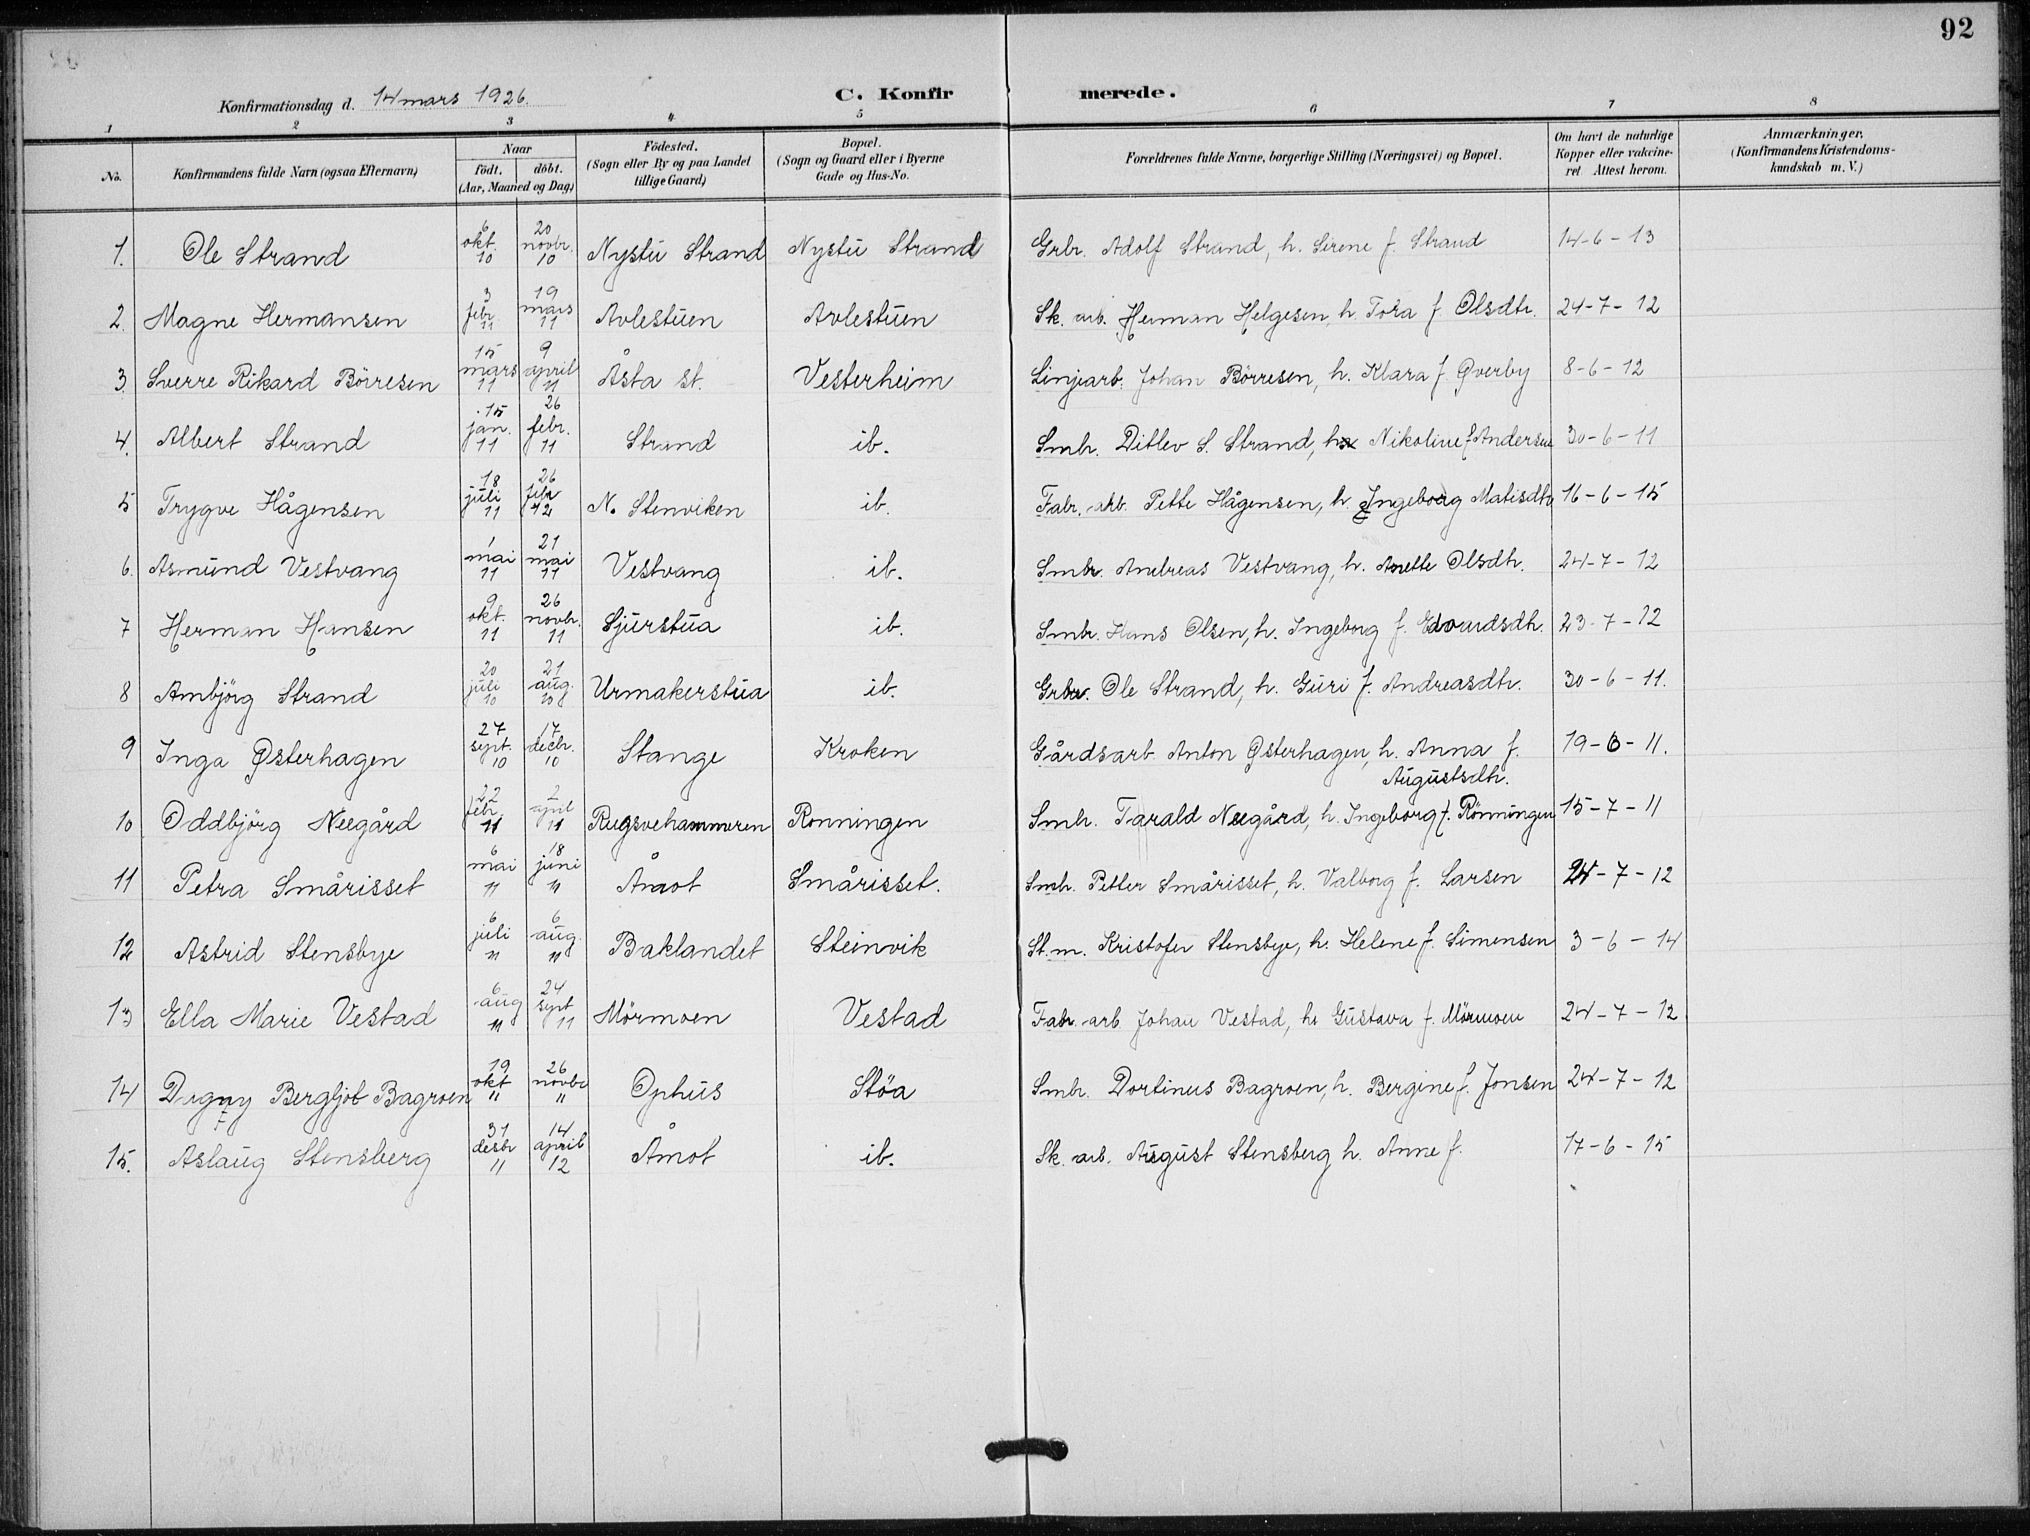 92
Konfirmationsdag d. 14 mars 1926.
C. Konfirmerede.
1 2 3 4 5 6 7 8
No. Konfirmandens fulde Navn (ogsaa Efternavn) Naar födt. döbt. (Aar, Maaned og Dag) Födested. (Sogn eller By og paa Landet tillige Gaard) Bopæl. (Sogn og Gaard eller i Byerne Gade og Hus-No. Forældrenes fulde Navne, borgerlige Stilling (Næringsvei) og Bopæl. Om havt de naturlige Kopper eller vakcineret Attest herom. Anmærkninger. (Konfirmandens Kristendomskundskab m. V.)
1. Ole Strand 6 okt. 10 20 novbr. 10 Nystu Strand Nystu Strand Grbr. Adolf Strand, h. Sirene f. Strand 14-6-13
2. Magne Hermansen 3 febr. 11 19 mars 11 Avlestuen Avlestuen Sk. arb. Herman Helgesen, h. Tora f Olsdtr. 24-7-12
3. Sverre Rikard Börresen 15 mars 11 9 april 11 Åsta st. Vesterheim Linjearb. Johan Börresen, h. Klara f. Øverby 8-6-12
4. Albert Strand 15 jan. 11 26 febr. 11 Strand ib. Smbr. Ditlev S. Strand, h. Nikoline f Andersen 30-6-11
5 Trygve Hågensen 18 juli 11 26 febr 12 N. Stenviken ib. Fabr. arb. Pette Hågensen, h. Ingeborg Matisdtr 16-6-15
6. Asmund Vestvang 1 mai 11 21 mai 11 Vestvang ib. Smbr. Andreas Vestvang, h. Anette Olsdtr. 24-7-12
7 Herman Hansen 9 okt. 11 26 novbr. 11 Sjurstua ib. Smbr. Hans Olsen, h. Ingeborg f. Edvardsdtr. 23-7-12
8 Ambjörg Strand 20 juli 10 21 aug. 10 Urmakerstua ib. Grbr. Ole Strand, h. Guri f. Andreasdtr. 30-6-11.
9 Inga Østerhagen 27 sept. 10 17 decbr. 10 Stange Kroken Gårdsarb. Anton Østerhagen, h. Anna f.
Augustsdtr. 19-6-11.
10 Oddbjörg Neegård 22 febr. 11 2 april 11 Rugsvehammeren Ronningen Smbr. Tarald Neegård, h. Ingeborg f. Rönningen 15-7-11
11 Petra Smårisset 6 mai 11 18 juni 11 Åmot Smårisset. Smbr. Petter Smårisset, h. Valborg f. Larsen 24-7-12
12 Astrid Stensbye 6 juli 11 6 aug. 11 Baklandet Steinvik St.m. Kristofer Stensbye, h. Helene f. Simensen 3-6-14
13 Ella Marie Vestad 6 aug 11 24 sept 11 Mörmoen Vestad Fabr. arb. Johan Vestad, h. Gustava f. Mörmoen 24-7-12
14 Dagny Bergljot Bagroen 19 okt 11 26 novbr 11 Ophus Støa Smbr. Dortinus Bagroen, h. Bergine f. Jonsen 24-7-12
15. Aslaug Stensberg 31 desbr 11 14 april 12 Åmot ib. Sk. arb. August Stensberg h. Anne f. 17-6-15